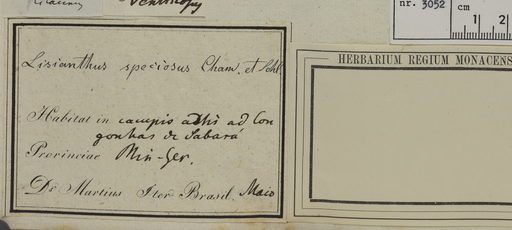 nr. 3052
cm
1 2
Lisianthus speciosus Cham. et Schl.
HERBARIUM REGIUM MONACENS
Habitat in campis altis ad Con
gonhas de Sabará
Provinciae Min-Ger.
Dr Martius Iter Brasil. Maio